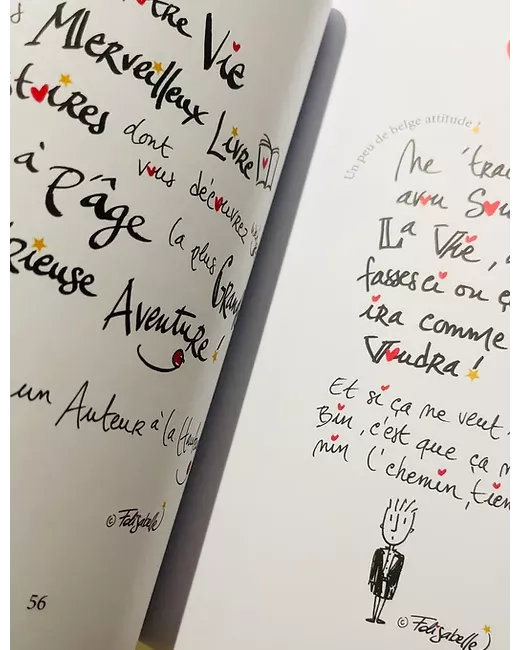 Vie
Merveilleux Livre
dont
vous découvrez
à l'âge la plus
Aventure!
un Auteur à la
© Folisabelle
56
Un peu de belge attitude!
Me
avou
La Vie,
fasses ci ou
ira comme
Voudra!
Et si ça me veut
Bin, c'est que ça
nin l'chemin,
© Folisabelle